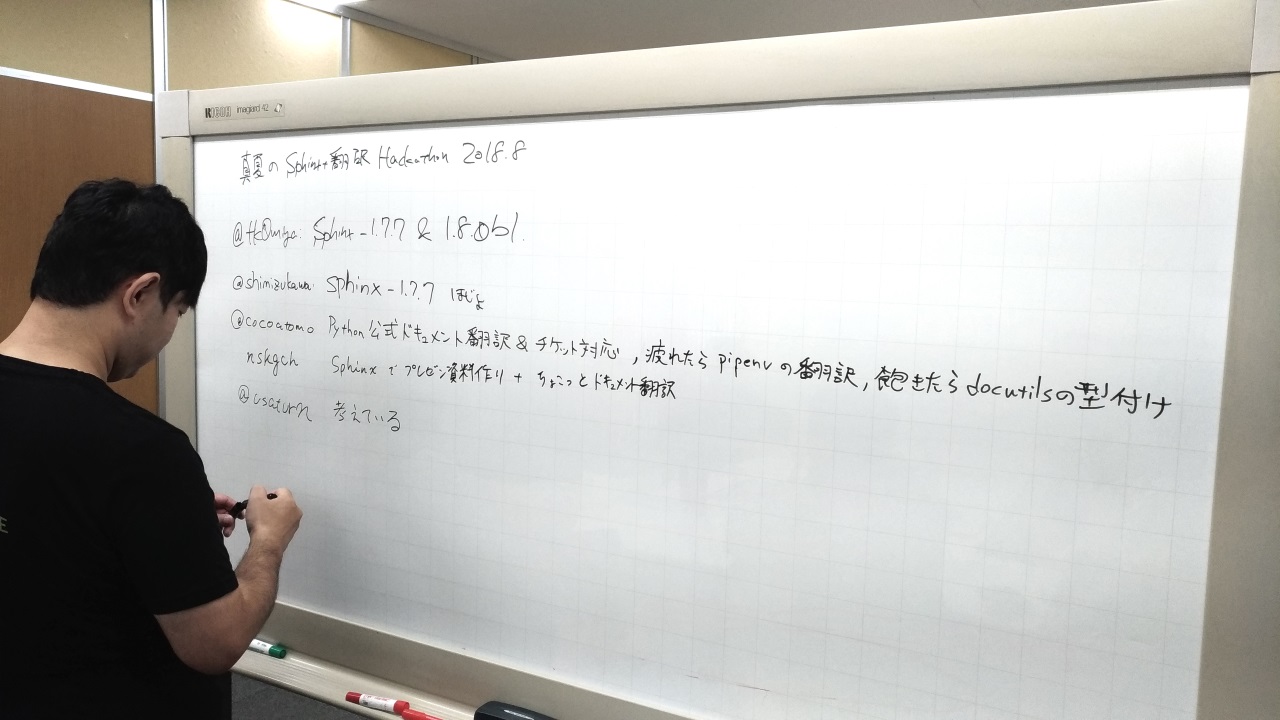 RICOH imagiard 42
真夏の Sphinx+翻訳 Hackathon 2018.8
Sphinx-1.7.7 & 1.8.0b1.
@shimizukawa: Sphinx-1.7.7 ほじょ
@cocoatomo Python公式ドキュメント翻訳 & チケット対応, 疲れたら pipenv の翻訳, 飽きたら docutilsの型付け
nskgch Sphinx で プレゼン資料作り + ちょこっとドキュメント翻訳
@usaturn 考えている